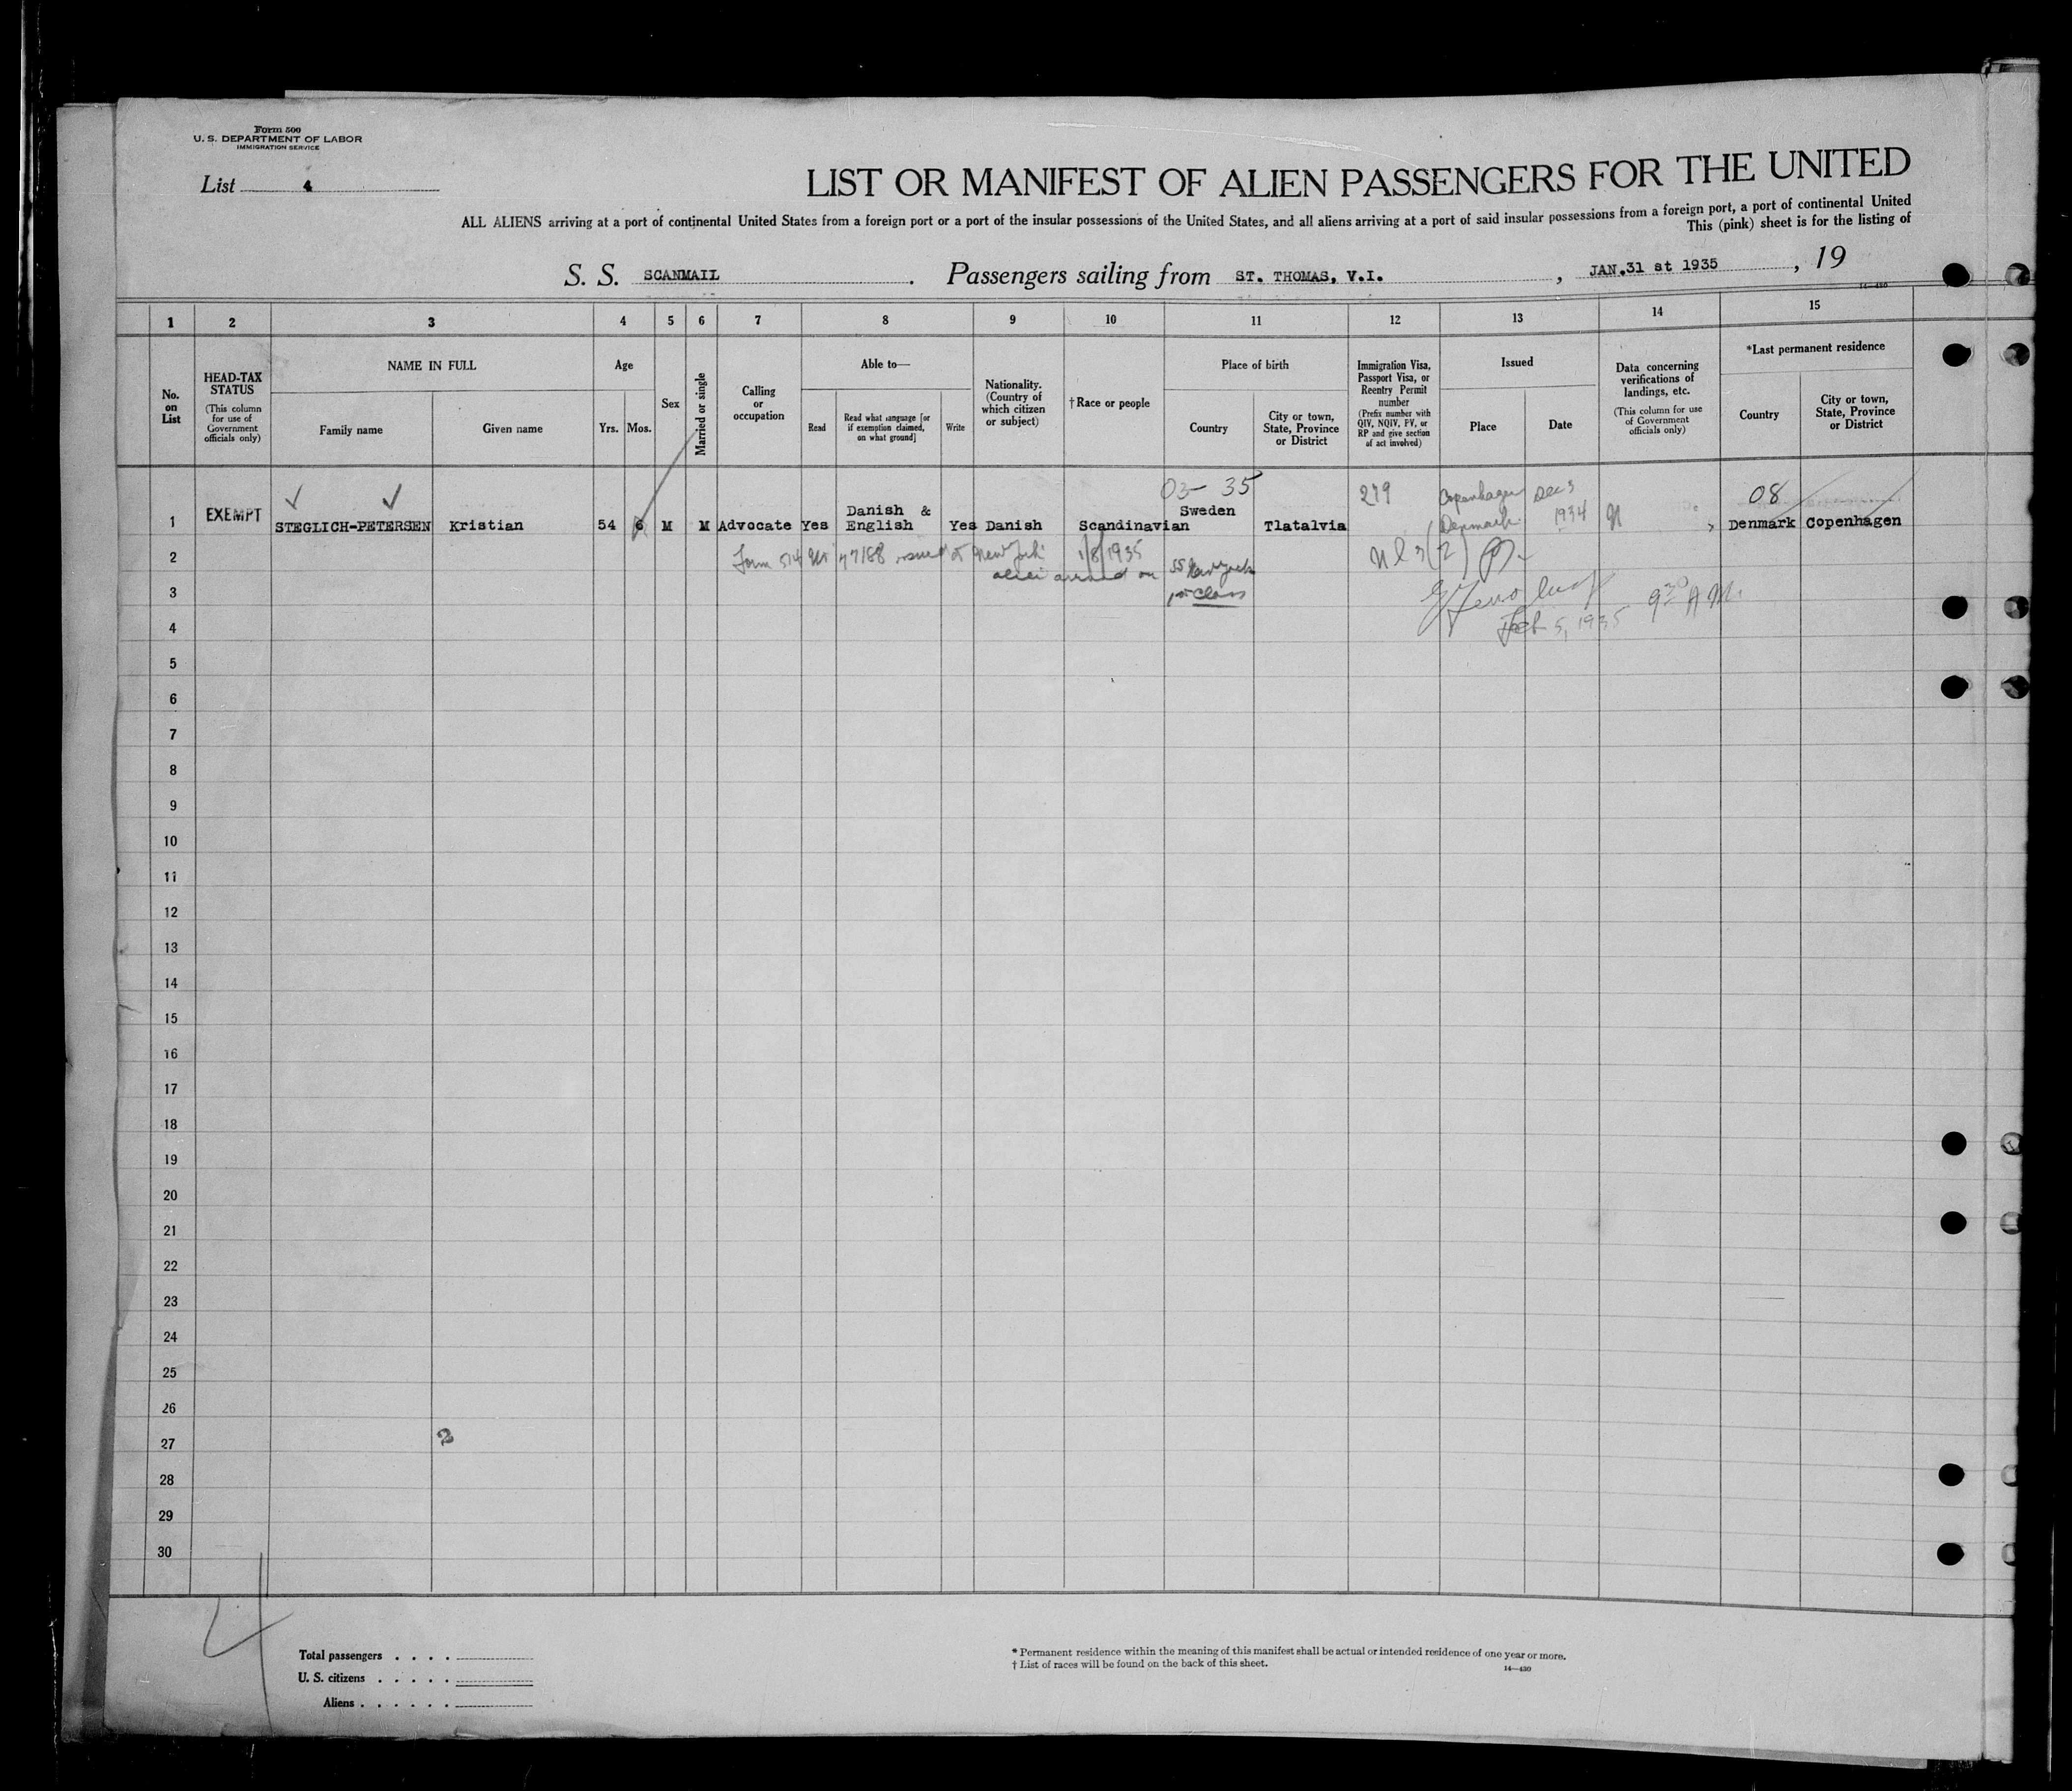 Form 500
U. S. DEPARTMENT OF LABOR
IMMIGRATION SERVICE
List 4
LIST OR MANIFEST OF ALIEN PASSENGERS FOR THE UNITED
ALL ALIENS arriving at a port of continental United States from a foreign port or a port of the insular possessions of the United States, and all aliens arriving at a port of said insular possessions from a foreign port, a port of continental United
This (pink) sheet is for the listing of
S. S. SCANMAIL. Passengers sailing from ST. THOMAS, V.I., JAN.31 st 1935, 19
14—430
1 2 3 4 5 6 7 8 9 10 11 12 13 14 15
No. on List
HEAD-TAX STATUS
(This column for use of Government officials only)
NAME IN FULL
Family name
Given name
Age
Yrs.
Mos.
Sex
Married or single
Calling or occupation
Able to—
Read
Read what language [or if exemption claimed, on what ground]
Write
Nationality. (Country of which citizen or subject)
†Race or people
Place of birth
Country
City or town, State, Province or District
Immigration Visa, Passport Visa, or Reentry Permit number
(Prefix number with QIV, NQIV, PV, or RP and give section of act involved)
Issued
Place
Date
Data concerning verifications of landings, etc.
(This column for use of Government officials only)
*Last permanent residence
Country
City or town, State, Province or District
03- 35 279 Copenhagen Dec 3 08
1 EXEMPT STEGLICH-PETERSEN Kristian 54 6 M M Advocate Yes Danish & English Yes Danish Scandinavian Sweden Tlatalvia Denmark 1934 Denmark Copenhagen
2 Form 514 issued at New York 1/8/1935 3(2)
alien arrived on SS New York
3 1st class 9 30 A.M.
4 Feb 5, 1935
5
6
7
8
9
10
11
12
13
14
15
16
17
18
19
20
21
22
23
24
25
26
27 2
28
29
30
4
Total passengers . . . .
U. S. citizens . . . . .
Aliens . . . . . .
* Permanent residence within the meaning of this manifest shall be actual or intended residence of one year or more.
† List of races will be found on the back of this sheet.
14—430